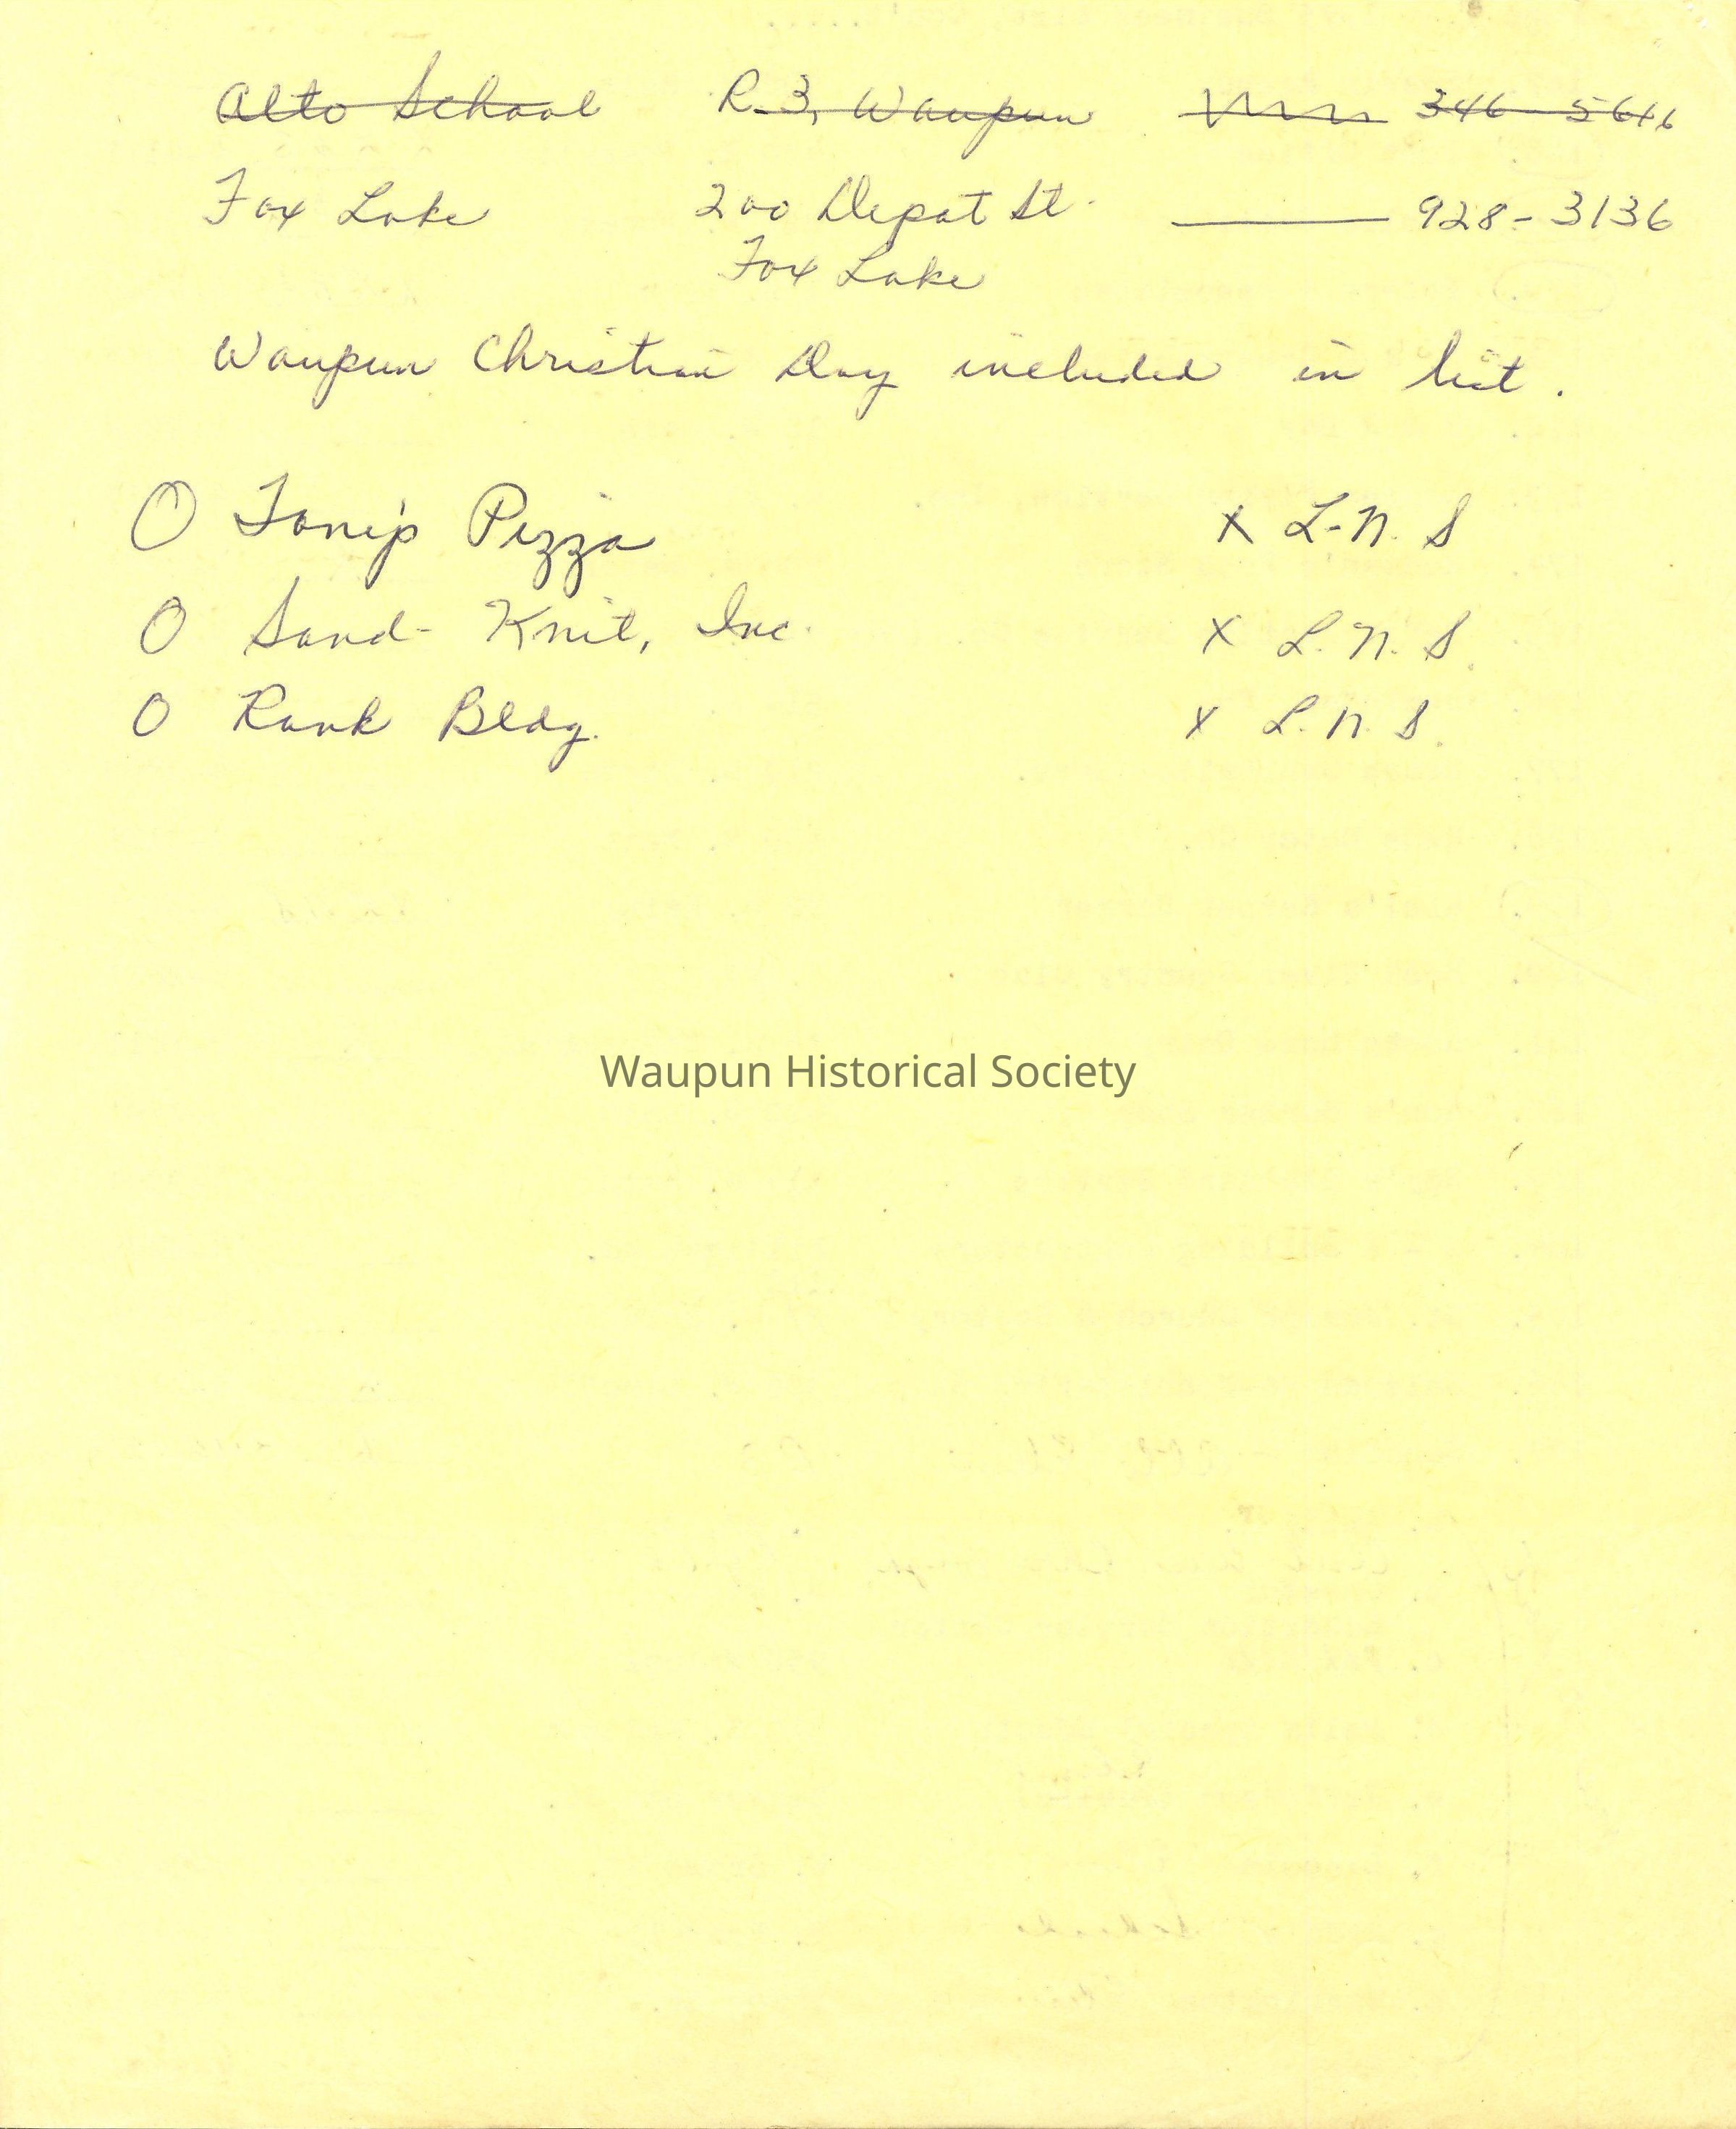 Alto School R. 3, Waupun 346-5646
Fox Lake 200 Depot St. 928-3136
Fox Lake
Waupun Christian Day included in list.
O Toni's Pizza x L-N. S
O Sand-Knit, Inc. x L. N. S.
O Rank Bldg. x L. N. S.
Waupun Historical Society